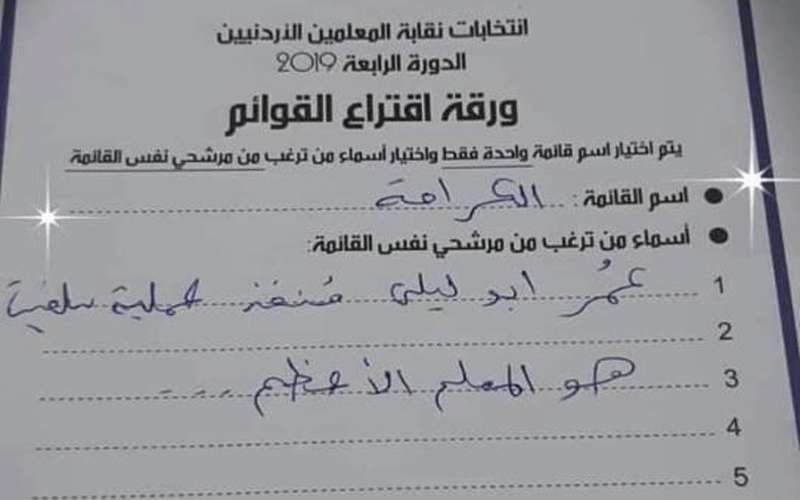 انتخابات نقابة المعلمين الأردنيين
الدورة الرابعة 2019
ورقة اقتراع القوائم
يتم اختيار اسم قائمة واحدة فقط واختيار أسماء من ترغب من مرشحي نفس القائمة
اسم القائمة : الكرامة
أسماء من ترغب من مرشحي نفس القائمة:
1 عمُر ابو ليلى مُنفذ عملية سلفيت
2
3 هو المعلم الأعظم ...
4
5